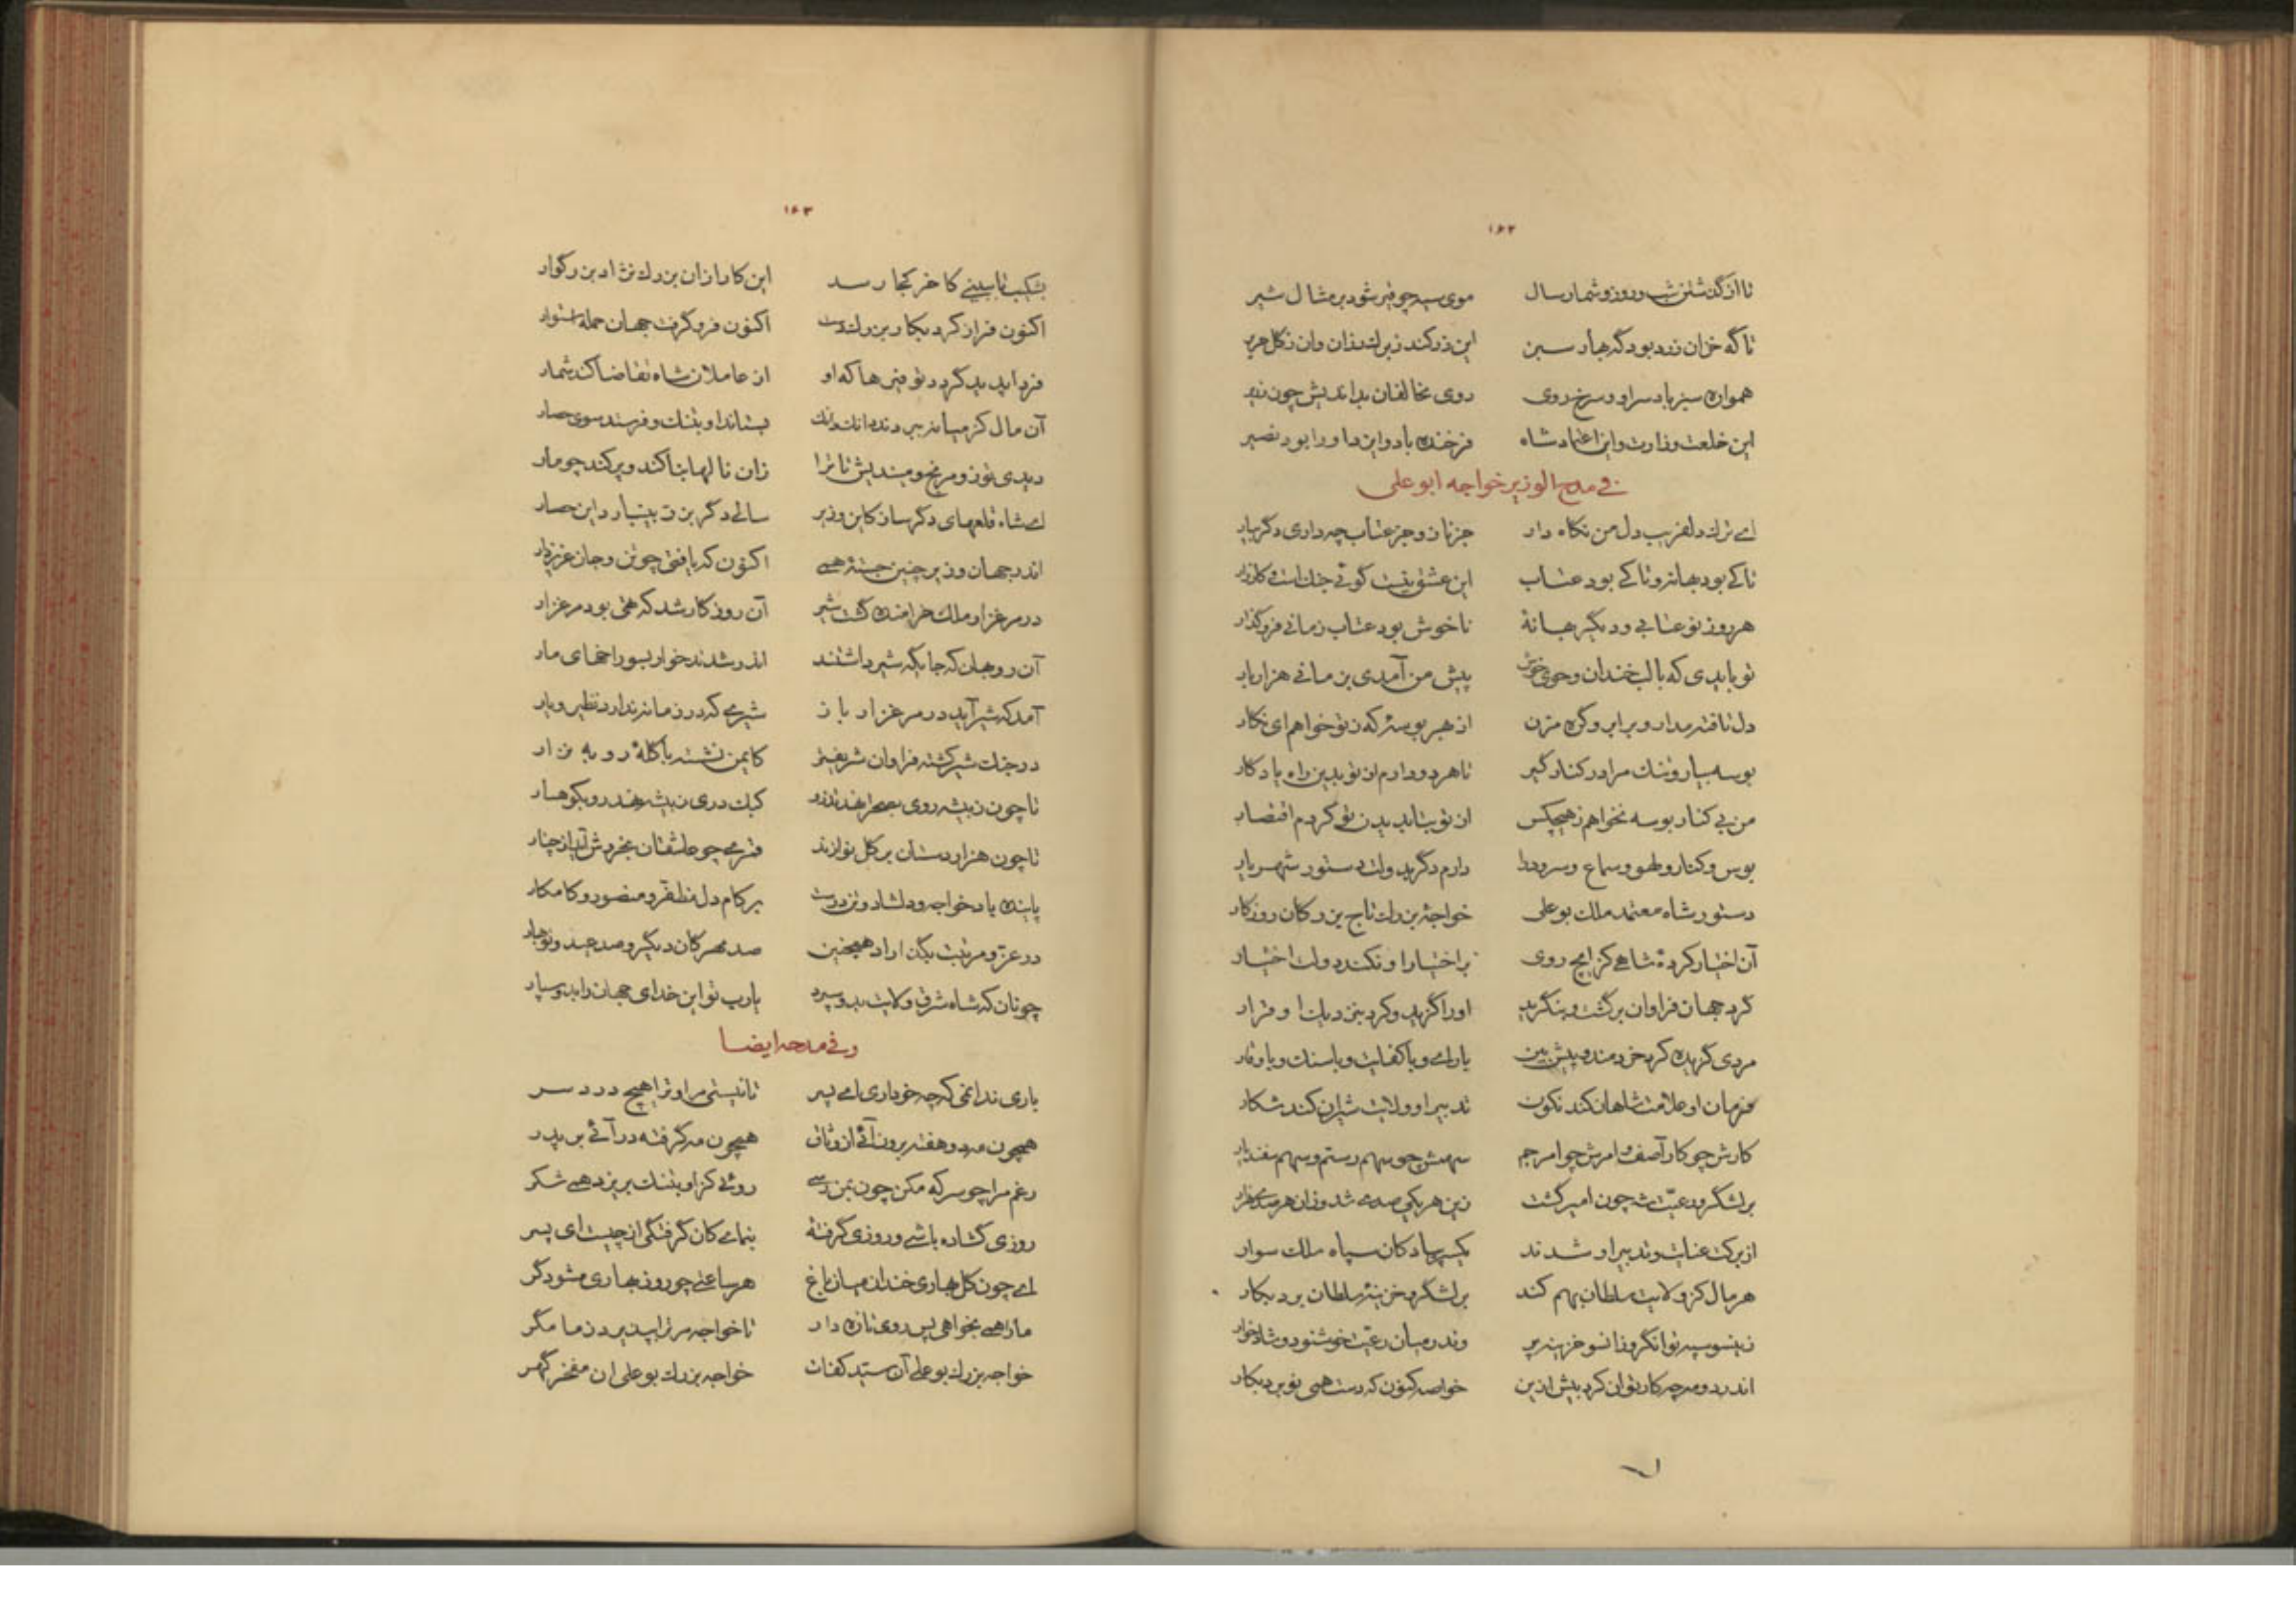 ۱۶۲
تا از گذشتن شب و روز و شمار سال موی سیه چو قیر شود بر مثال شیر
تا گه خزان زرد بود گه بهار سبز این زر کند ز برگ رزان وان ز گل حریر
همواره سبز باد سر او و سرخ روی روی مخالفان بداندیش چون زریر
این خلعت وزارت و این اعتماد شاه فرخنده باد و ایزد او را بود نصیر
فی مدح الوزیر خواجه ابو علی
ای ترک دلفریب دل من نگاه دار جز ناز و جز عتاب چه داری دگر بیار
تا کی بود بهانه و تا کی بود عتاب این عشق نیست گوئی جنک است و کارزار
هر روز نو عتابی و دیگر بهانهٔ ناخوش بود عتاب زمانی فرو گذار
تو بایدی که با لب خندان و خوی خوش پیش من آمدی بزمانی هزار بار
دل تافته مدار و بر ابرو گره مزن از بهر بوسهٔ که ز تو خواهم ای نگار
بوسه بیار و تنک مرا در کنار گیر تا هر دو دارم از تو بدین راه یادگار
من بی کنار بوسه نخواهم ز هیچکس از تو بتا بدیدن تو کردم اقتصار
بوس و کنار و لهو و سماع و سرود را دارم دگر بدولت دستور شهریار
دستور شاه معتمد ملک بوعلی خواجهٔ بزرک تاج بزرگان روزگار
آن اختیار کردهٔ شاهی کز ایچ روی بر اختیار او نکند دولت اختیار
گرد جهان فراوان برگشت و بنگرید او را گزید و کرد بتدبیر او قرار
مردی گزیده کرد خردمند و پیش بین با رای و با کفایت و با سنک و با وقار
فرمان او علامت شاهان کند نگون تدبیر او ولایت شیران کند شکار
کارش چو کار آصف و امرش چو امر جم سهمش چو سهم رستم و سهم سفندیار
بر لشگر و رعیت شه چون امیر گشت زین هر یکی صدی شد و زان هر صدی هزار
از برکت عنایت و تدبیر او شدند یکسر پیادگان سپاه ملک سوار
هر مال کز ولایت سلطان بهم کند بر لشگر و خزینهٔ سلطان برد بکار
زینسو سپه توانگر و زانسو خزینه پر وندر میان رعیت خوشنود و شادخوار
اندر دو مه چه کار توان کرد بیش ازین خواصه کنون که دست همی نو برد بکار
۱۶۳
بشکیب تا ببینی کاخر کجا رسد این کار ازان بزرک نژاد بزرگوار
اکنون فراز کرد بکار بزرک دست اکنون فرو گرفت جهان جمله استوار
فردا پدید گردد توفیرها که او از عاملان شاه تقاضا کند شمار
آن مال کز میانه ببردند دانک دانک بستاند او بتنک و فرستد سوی حصار
دیدی تو رنج و مندیش تا ترا زان مالها بیاکند و پر کند چو مار
ای شاه قلعهای دگر ساز کاین وزیر سالی دگر بزر بینبارد این حصار
اندر جهان وزیر چنین جستهٔ همی اکنون که یافتی چو تن و جان عزیز دار
در مرغزار ملک خرامنده گشت شیر آن روزگار شد که تهی بود مرغزار
آن روبهان که جایگه شیر داشتند اندر شدند خوار بسوراخهای مار
آمد که شیر آید در مرغزار باز شیری که در زمانه ندارد نظیر و یار
در جنک شیر گشته فراوان شریفتر کایمن نشسته با گلهٔ روبه نزار
تا چون ز بیشه روی بصحرا نهد تذرو کبک دری ز بیشه نهد رو بکوهسار
تا چون هزاردستان بر گل نوا زند قمری چو عاشقان بخروش آید از چنار
پاینده باد خواجه و دلشاد و تندرست بر کام دل مظفر و منصور و کامکار
در عز و مرتبت بگذاراد همچنین صد مهرگان دیگر و صد عید و نو بهار
چونان که شاه شرق ولایت بدو سپرد یارب تو این خدای جهان را بدو سپار
و فی مدحه ایضا
باری ندانمی که چه خو داری ای پسر تا نیستی مرا و ترا هیچ دردسر
همچون مه دو هفته برون آئی از وثاق همچون مه گرفته درآئی بر پدر
رغم مرا چو سرکه مکن چون بمن رسی روئی کز او بتنک بریزد همی شکر
روزی گشاده باشی و روزی گرفتهٔ بنمای کان گرفتگی از چیست ای پسر
ای چون گل بهاری خندان میان باغ هر ساعتی چو روز بهاری مشو دگر
ما را همی بخواهی پس روی تازه دار تا خواجه مر ترا بپذیرد ز ما مگر
خواجه بزرک بوعلی آن سید کفات خواجه بزرک بوعلی ان مفخر گهر